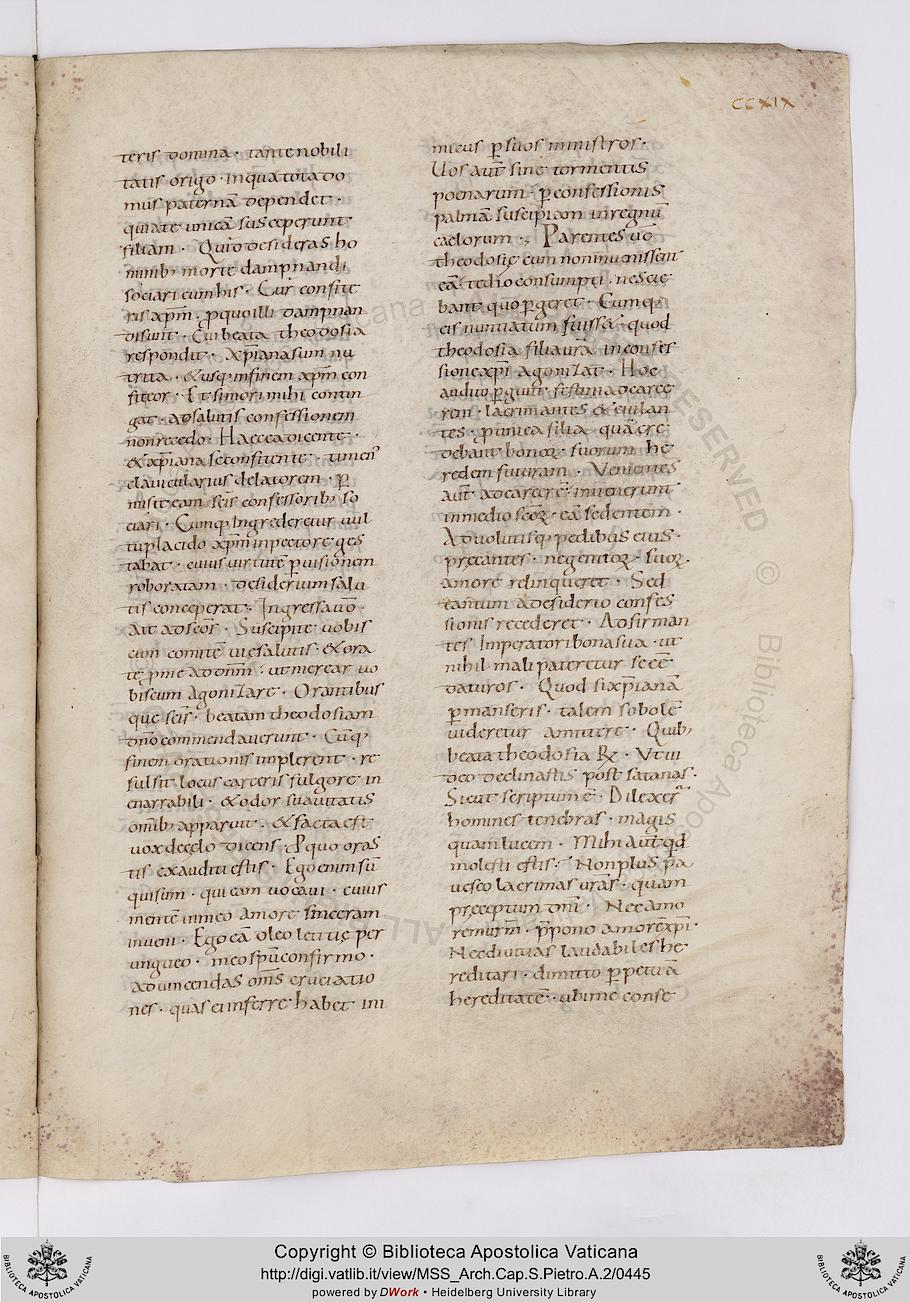 CCXIX
teris domina · tante nobili
tatis origo · inqua tota do
mus paterna dependet ·
qui ate unicā susceperunt
filiam · Quid desideras ho
minib; morte dampnandi
sociari cum his · Cur confite
ris xp̄m · ꝓ quo illi dampnan
di sunt · Cui beata theodosia
respondit · xp̄iana sum nu
trita · & usq; in finem xp̄m con
fiteor · Et si mori mihi contin
gat · ad salutis confessionem
non recedo · Haec ea dicente ·
& xp̄iana se confitente · timens
clavicularius delatorem · ꝑ
misit eam sc̄is confessorib; so
ciari · Cumq; ingrederetur vul
tu placido xp̄m in pectore ges
tabat · cuius virtutē ꝑ visionem
roboratam · desiderium salu
tis conceperat · Ingressa v̄o ·
ait ad sc̄os · Suscipite vobis
cum comitē vie salutis · & ora
te ꝓ me ad dn̄m · ut merear vo
biscum agonizare · Orantibus
que sc̄is · beatam theodosiam
dn̄o commendaverunt · Cūq;
finem orationis implerent · re
fulsit locus carceris fulgore in
enarrabili · & odor suavitatis
omīb; apparuit · & facta est
vox de cęlo dicens · P quo oras
tis exauditi estis · Ego enim sū
qui sum · qui eam vocavi · cuius
mentē in meo amore sinceram
inveni · Ego eā oleo letitię per
ungueo · meo sp̄u confirmo ·
ad vincendas om̄s cruciatio
nes · quas ei inferre habet ini
micus ꝑ suos ministros ·
Uos aūt sine tormentis
poenarum · ꝑ confessionis
palmā suscipiam in regnū
caelorum · Parentes v̄o
theodosię cum non invenissent
eā · tedio consumpti · nescie
bant quo ꝑgeret · Cumq;
eis nuntiatum fuissā · quod
theodosia filia ur̄a in confes
sione xp̄i agonizat · Hoc
audito ꝑgunt · festini ad carce
rem · lacrimantes & eiulan
tes · ꝓ unica filia · quā cre
debant bonoꝝ suorum he
redem futuram · Venientes
aūt ad carcerē · invenerunt
in medio sc̄oꝝ eā sedentem ·
Advolutisq; pedibus eius ·
precantes · ne genitoꝝ · suoꝝ
amorē relinqueret · Sed
tantum a desiderio confes
sionis recederet · Adfirman
tes Imperatori bona sua · ut
nihil mali pateretur se eē
daturos · Quod si xp̄ianā
ꝑmanseris · talem sobolē
videretur amittere · Quib;
beata theodosia R̷ · Ut in
deo declinastis post satanas ·
Sicut scriptum ē · Dilexer̄
homines tenebras · magis
quam lucem · Mihi aūt qd̄
molesti estis · Non plus pa
vesco lacrimas ur̄as · quam
pręceptum dn̄i · Nec amo
rem ur̄m · p̄pono amorē xp̄i ·
Nec divitias laudabiles he
reditari · dimitto ꝑpetuā
hereditatē · ubi me conse
Copyright © Biblioteca Apostolica Vaticana
http://digi.vatlib.it/view/MSS_Arch.Cap.S.Pietro.A.2/0445
powered by DWork • Heidelberg University Library